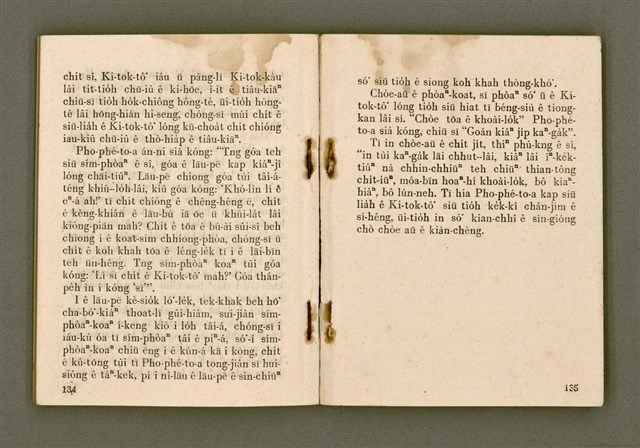 chi̍t sî, Ki-tok-tô͘ iáu ū pàng-lī Ki-tok-kàu
lâi tit-tio̍h chū-iû ê ki-hōe, i-it ê tiâu-kiāⁿ
chiū-sī tio̍h ho̍k-chiông hông-tè, ūi-tio̍h hông-
tè lâi hōng-hiàn hi-seng, chóng-sī múi chi̍t ê
siū-lia̍h ê Ki-tok-tô͘ lóng kū-choa̍t chit chióng
iau-kiû chū-iû ê thò-hia̍p ê tiâu-kiāⁿ.
Pho-phé-to-a án-ni siá kóng: “Tng góa teh
siū sím-phòaⁿ ê sî, góa ê lāu-pē kap kiáⁿ-jî
lóng chāi-tiûⁿ. Lāu-pē chiong góa tùi tâi-á-
téng khiú-lo̍h-lâi, kiû góa kóng: ‘Khó-lîn lí ê
eⁿ-á ah!’ tī chit chióng ê chêng-hêng ē, chit
ê kèng-khiân ê lāu-bú iā ōe ū khùi-la̍t lâi
kóng-piān mah? Chit ê tōa ê bú-ài sûi-sî beh
chiong i ê koat-sim chhiong-phòa, chóng-sī ū
chi̍t ê koh khah tōa ê lêng-le̍k tī i ê lāi-bīn
teh ūn-hêng. Tng sím-phòaⁿ koaⁿ tùi góa
kóng: ‘Lí sī chi̍t ê Ki-tok-tô͘ mah?’ Góa thán-
pe̍h ìn i kóng ‘sī’”.
I ê lāu-pē kè-sio̍k ló͘-le̍k, tek-khak beh hō͘
cha-bó͘-kiáⁿ thoat-lī gûi-hiám, sui-jiân sím-
phòaⁿ-koaⁿ í-keng kiò i lo̍h tâi-á, chóng-sī i
iáu-kú óa tī sím-phòaⁿ tâi ê piⁿ-á, só͘-í sím-
phòaⁿ-koaⁿ chiū ēng i ê kún-á kā i kòng, chit
ê kú-tōng tùi tī Pho-phé-to-a tong-jiân sī hui-
siông ê táⁿ-kek, pí i nî-lāu ê lāu-pē ê sin-chiūⁿ
134
só͘ siū tio̍h ê siong koh khah thòng-khó͘.
Chòe-āu ê phòaⁿ-koat, sī phòaⁿ só͘ ū ê Ki-
tok-tô͘ lóng tio̍h siū hiat tī béng-siù ê tiong-
kan lâi sí. “Chòe tōa ê khoài-lo̍k” Pho-phé-
to-a siá kóng, chiū sī “Goán kiâⁿ ji̍p kaⁿ-ga̍k”.
Tī in chòe-āu ê chi̍t ji̍t, thiⁿ phú-kng ê sî,
“in tùi kaⁿ-ga̍k lāi chhut-lâi, kiâⁿ lâi îⁿ-ke̍k-
tiûⁿ ná chhin-chhiūⁿ teh chiūⁿ thian-tông
chi̍t-iūⁿ, móa-bīn hoaⁿ-hí khoài-lo̍k, bô kiaⁿ-
hiâⁿ, bô lún-neh. Tī hia Pho-phé-to-a kap siū
lia̍h ê Ki-tok-tô͘ siū tio̍h ke̍k-kî chân-jím ê
sí-hêng, ūi-tio̍h in só͘ kian-chhî ê sìn-gióng
chò chòe āu ê kiàn-chèng.
135